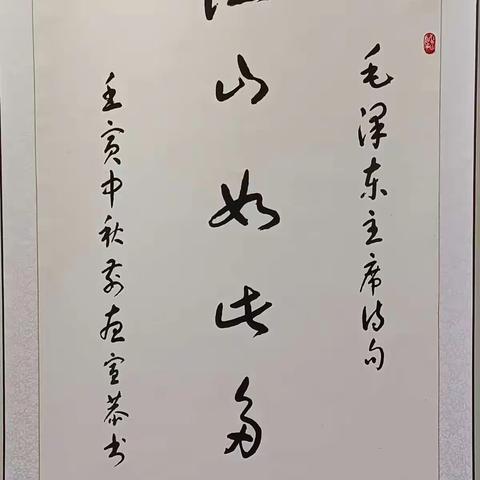 毛泽东主席诗句
江山如此多
壬寅中秋前宣恭书